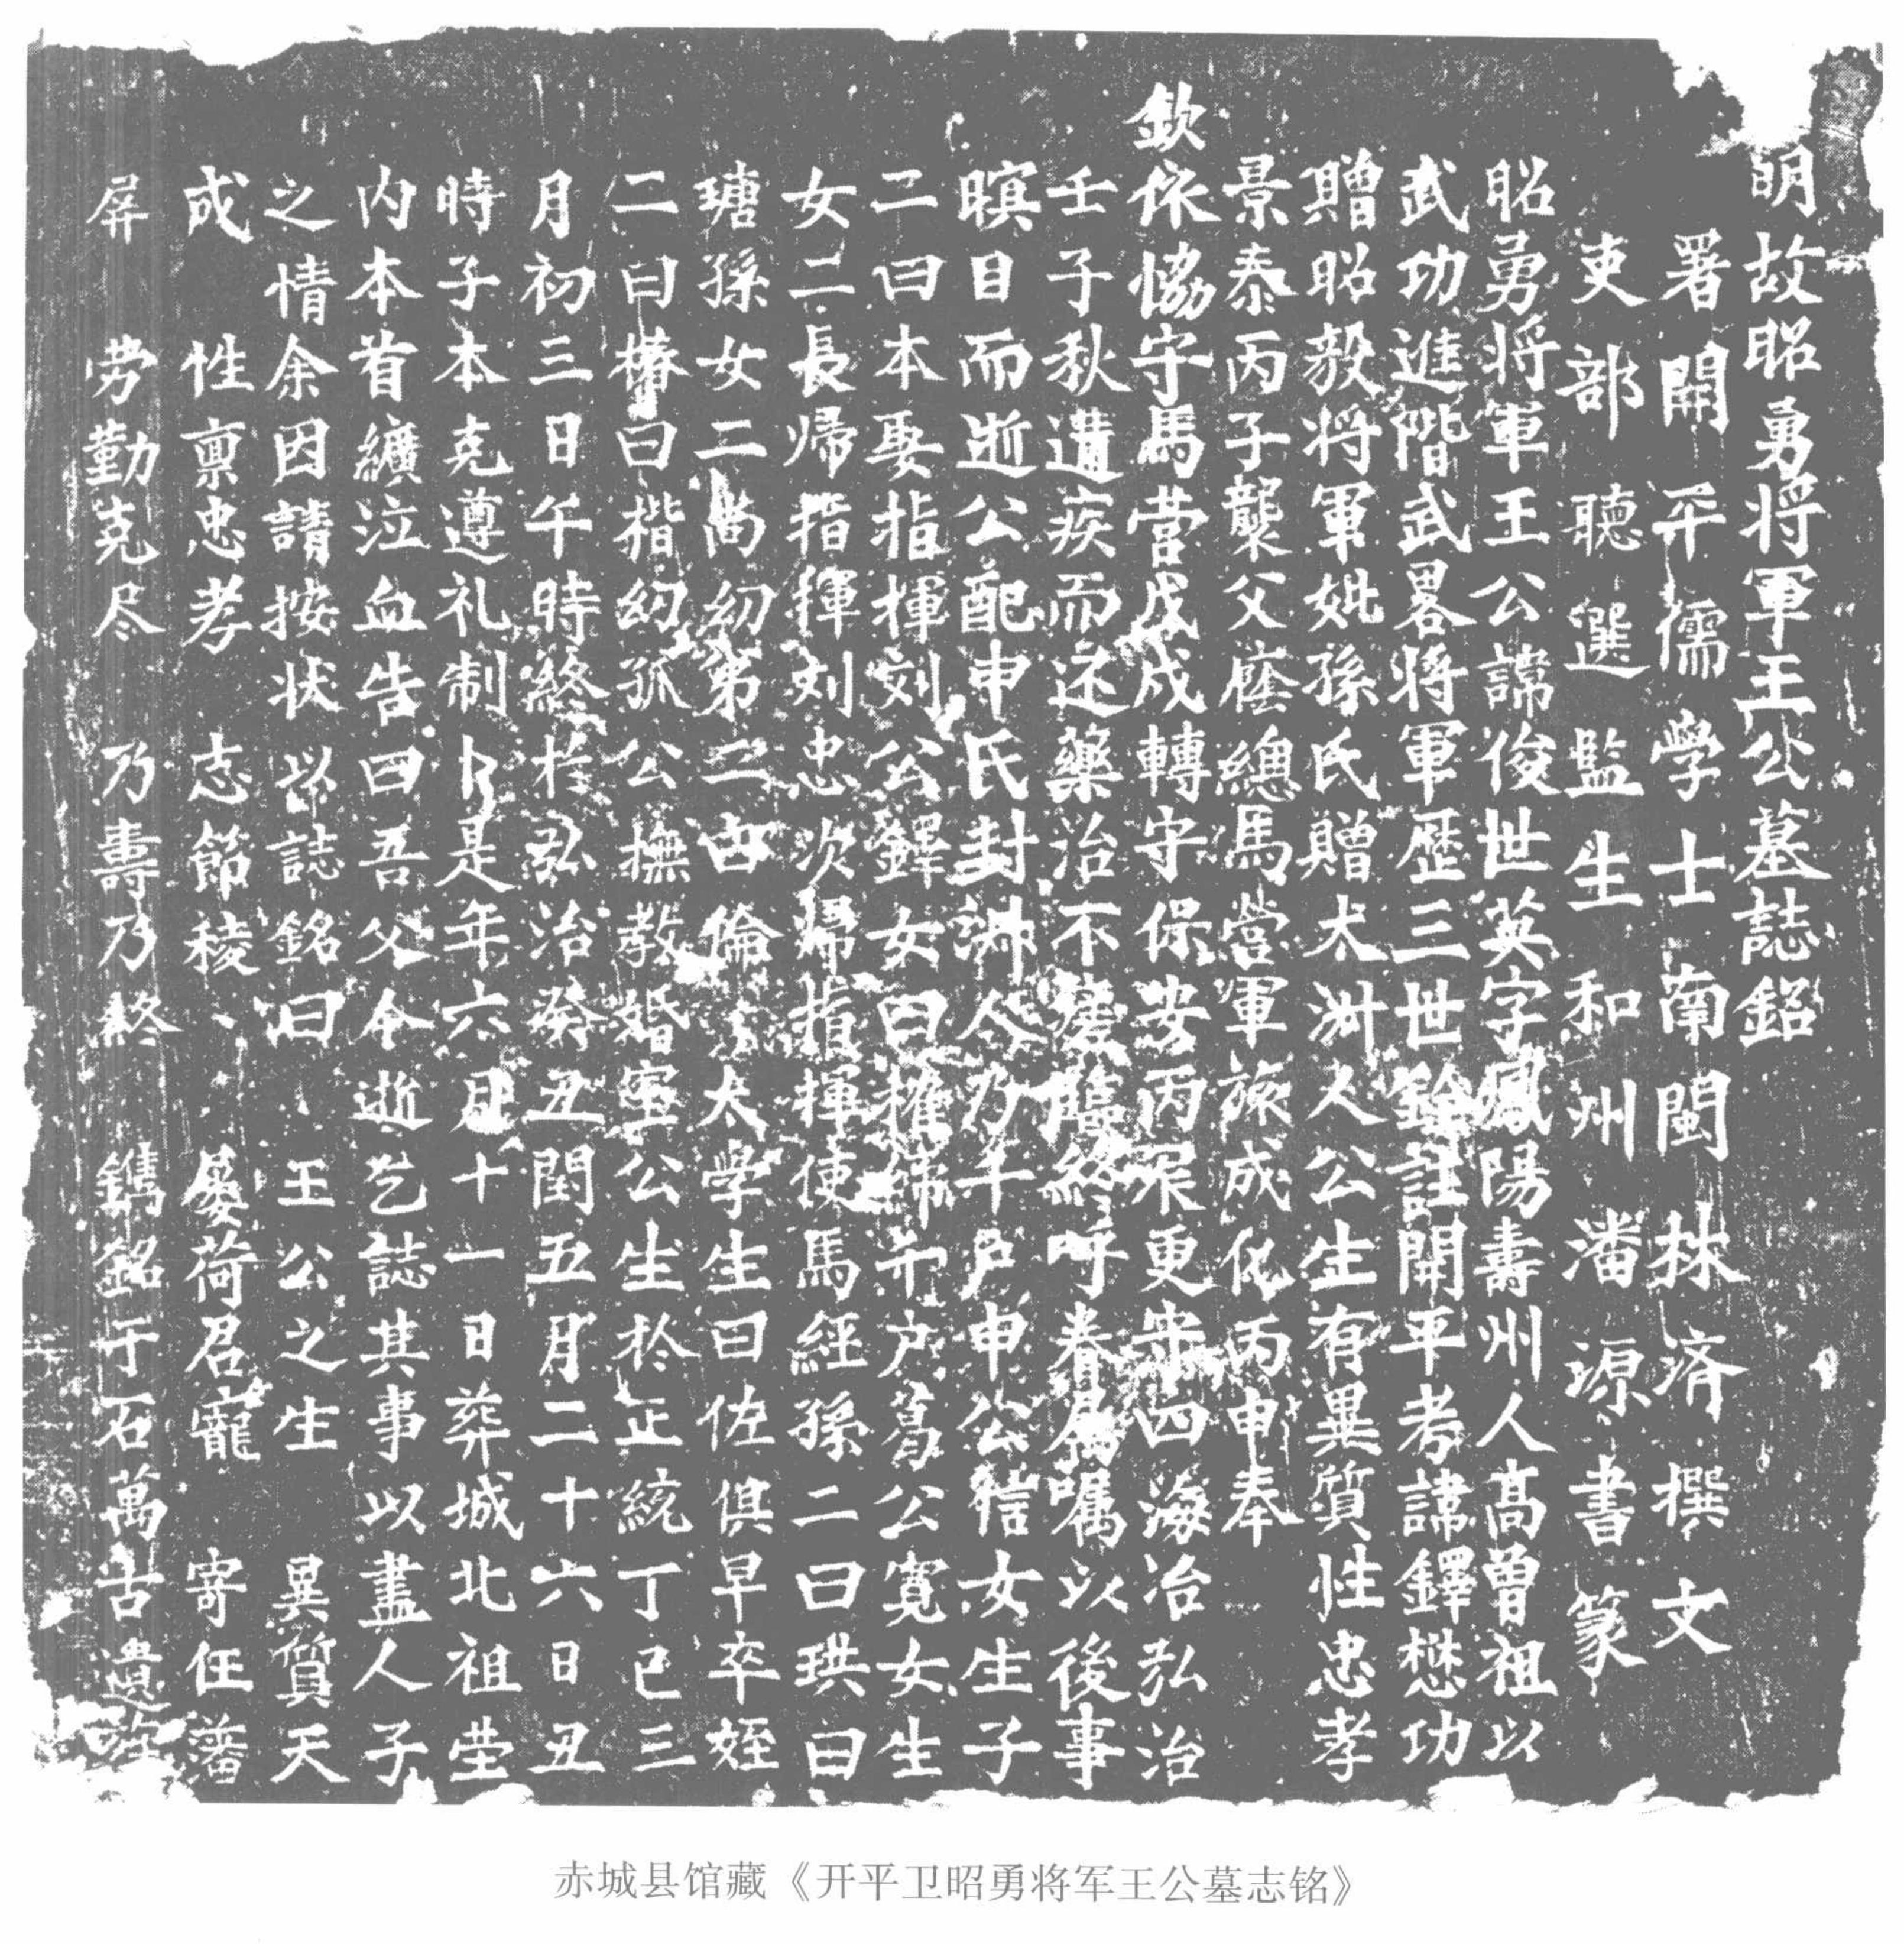 明故昭勇将軍王公墓誌銘
署開平儒學士南閩林済撰文
吏部聽選監生和州潘源書篆
昭勇将軍王公諱俊世英字鳳陽壽州人髙曽祖以
武功進階武畧将軍歷三世註開平考諱鐸懋功
贈昭毅将軍妣孫氏贈太淑人公生有異質性忠孝
景泰丙子襲父廕總馬營軍旅成化丙申奉
欽依恊守馬营戊戌轉守保安丙午更守四海冶弘治
壬子秋遘疾而迯藥治不痊臨終呼眷属嘱以後事
暝目而逝公配申氏封淑人乃千户申公信女生子
二曰本娶指揮刘公鐸女曰千户葛公寬女生
女二長帰指揮刘忠次帰指揮使馬經孫二曰珙曰
瑭孫女二尚幼弟二曰倫太學生曰佐俱早卒姪
二曰椿曰楷幼孤公撫教婚室公生於正統丁巳三
月初三日午時終於弘治癸丑閏五月二十六日丑
時子本克遵礼制卜是年六月十一日葬城北祖塋
内本首纊泣血告曰吾父今逝乞誌其事以盡人子
之情余因請按状以誌銘曰王公之生異質天
成性禀忠孝志節稜屡荷君寵寄任藩
屏劳勤克尽乃壽乃終鐫銘于石萬古遺
赤城县馆藏《开平卫昭勇将军王公墓志铭》